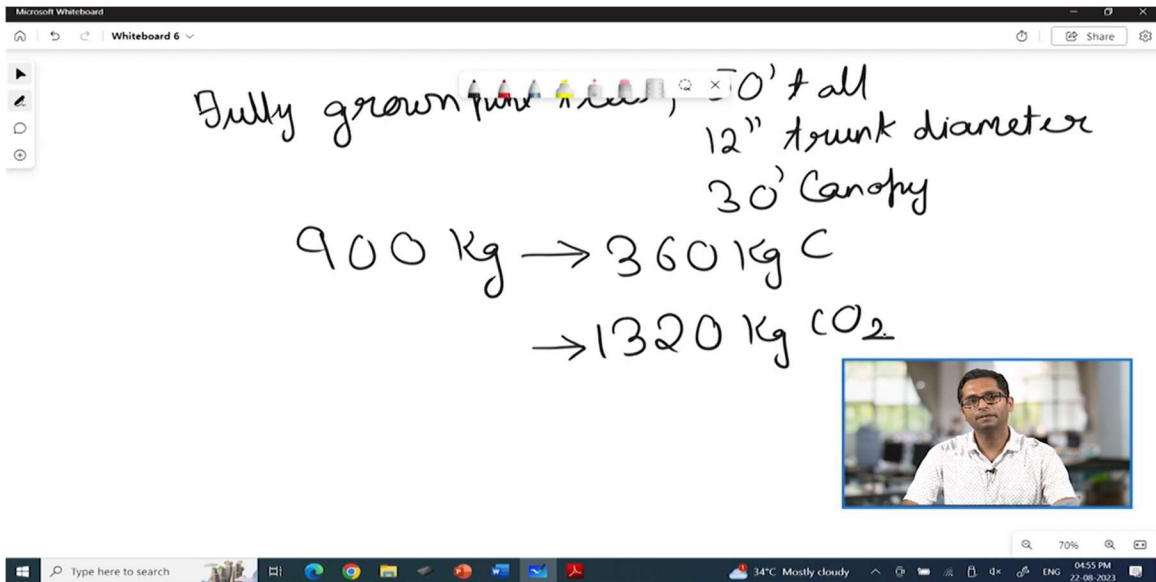 Microsoft Whiteboard
Whiteboard 6
Share
Fully grown
tall
12" trunk diameter
30' Canopy
900 Kg → 360 Kg C
→ 1320 Kg CO2
70%
Type here to search
34°C Mostly cloudy
ENG
04:55 PM
22-08-2023